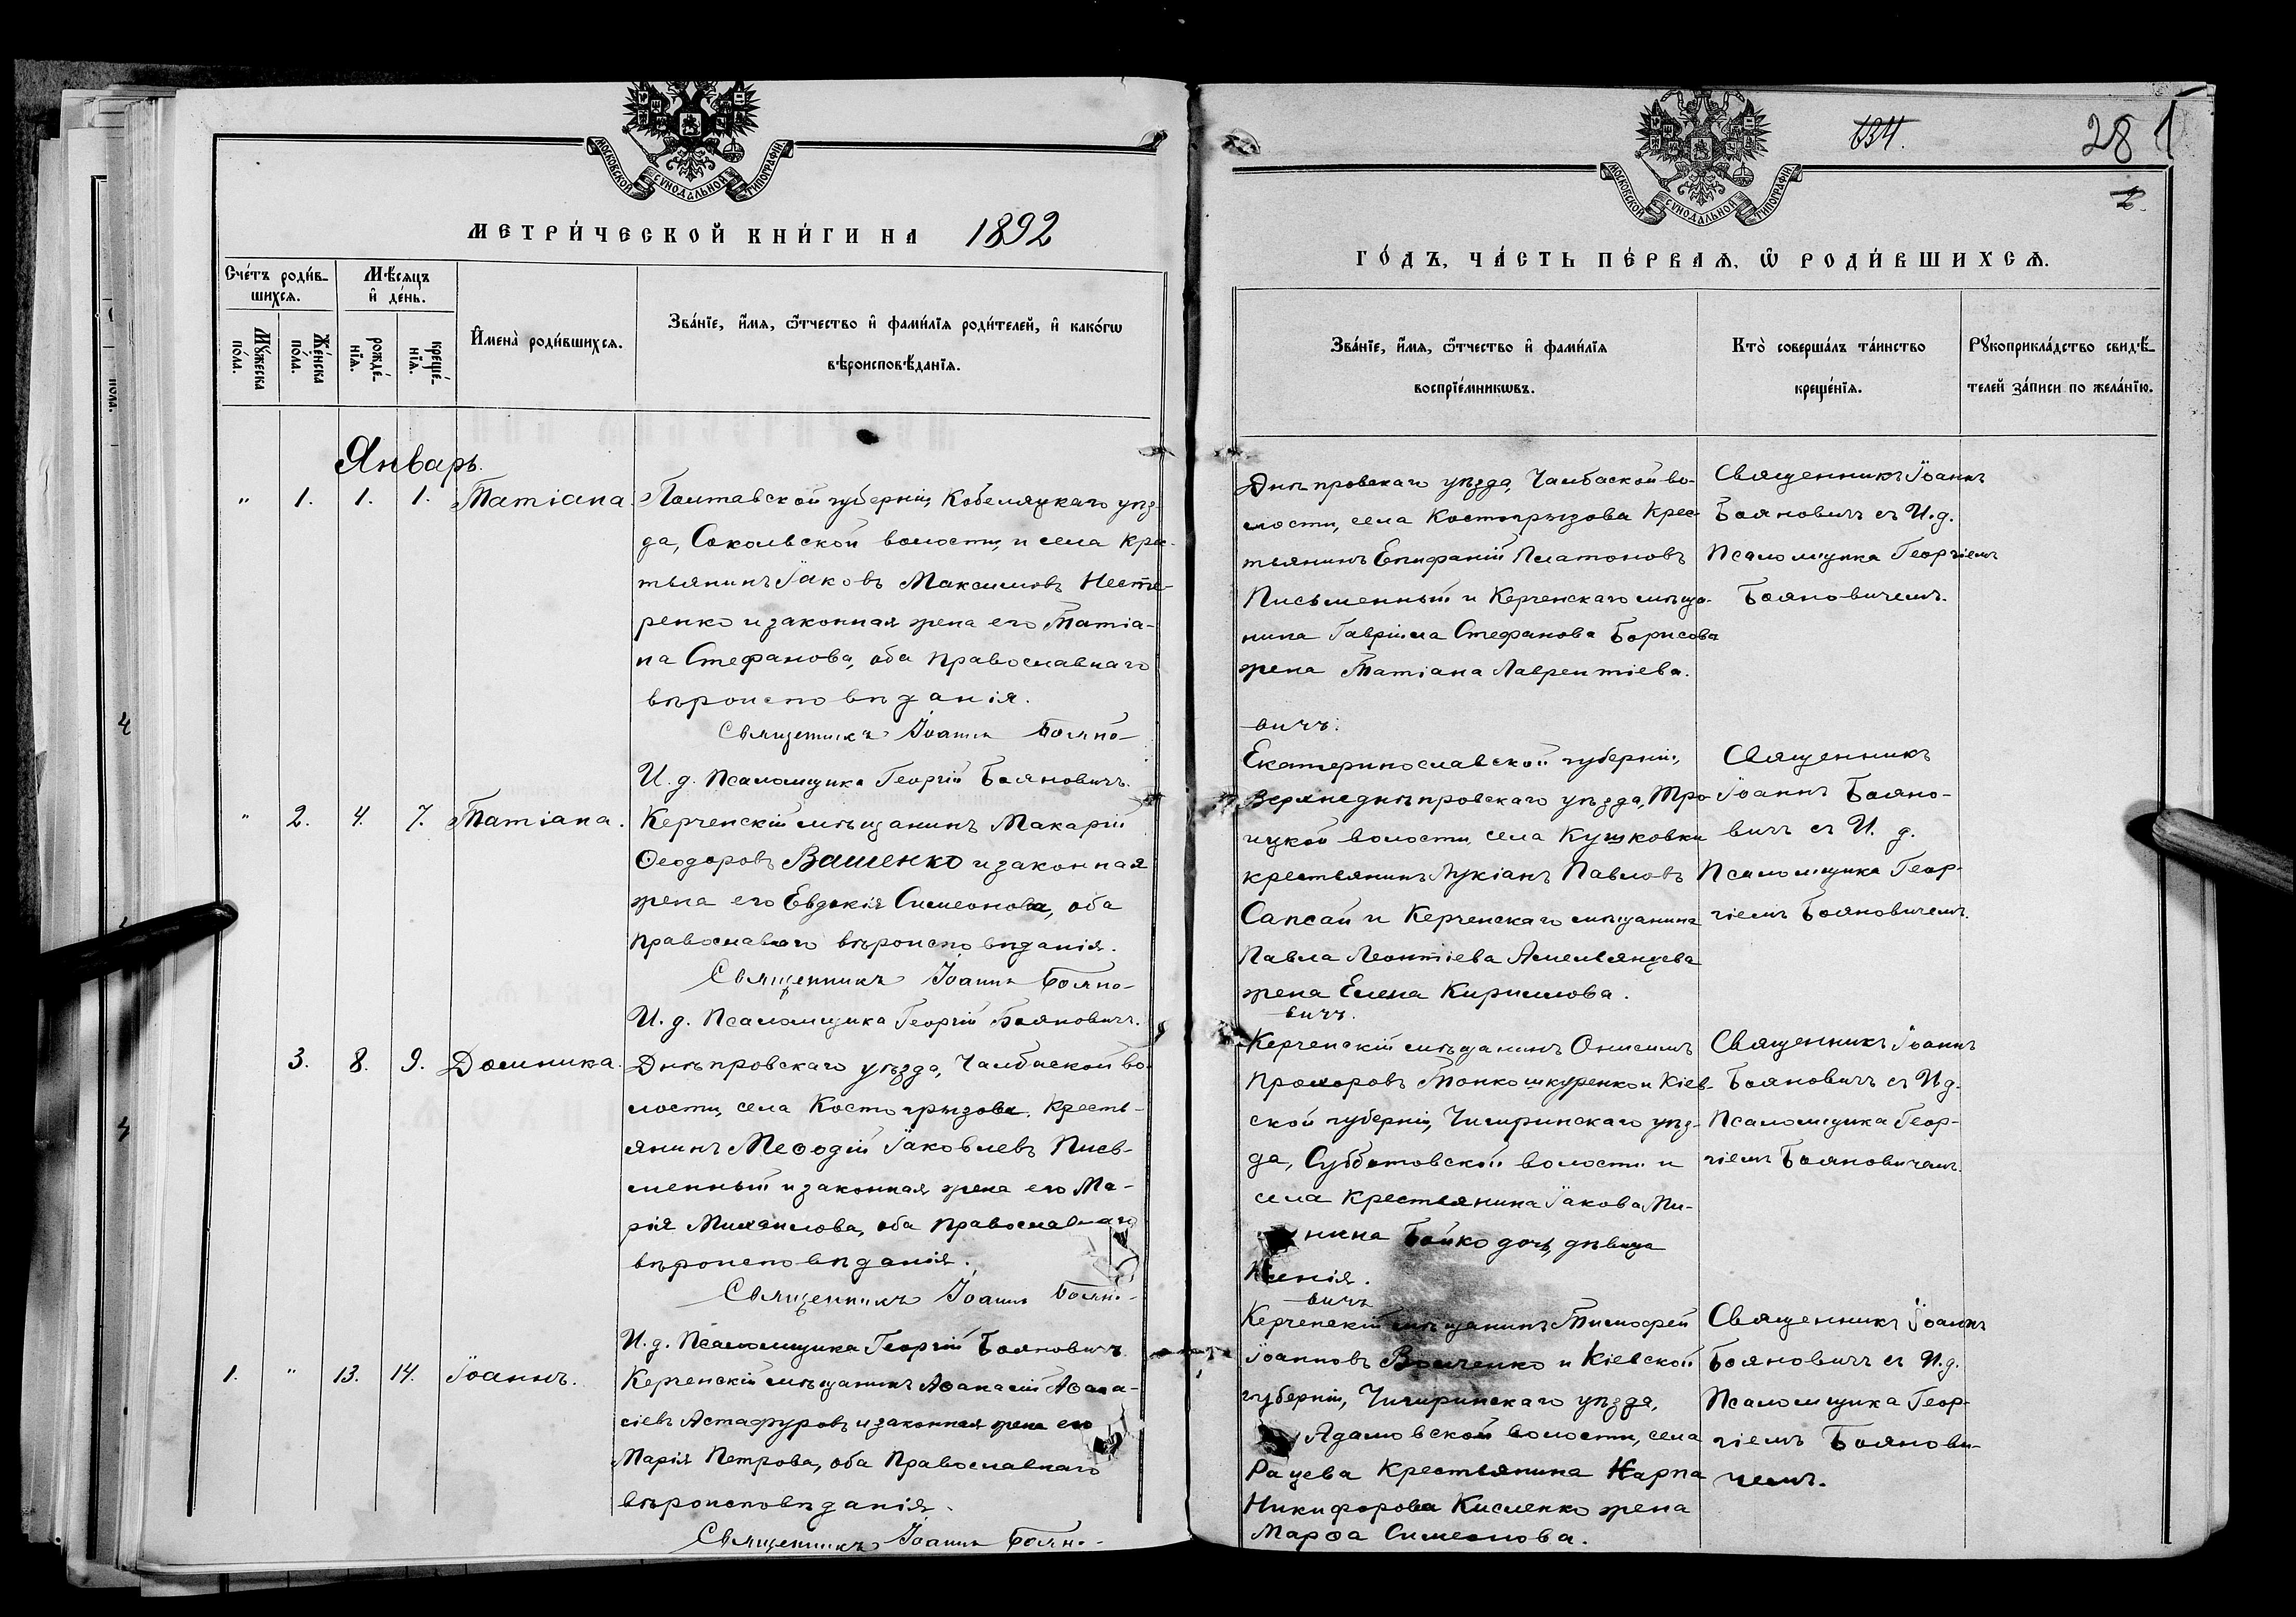 МОСКОВСКОЙ СѴНОДАЛЬНОЙ ТИПОГРАФІИ
МЕТРИ́ЧЕСКОЙ КНИ́ГИ НА 1892
Сче́тъ роди́в-
шихсѧ.
Мѣ́сѧцъ
и҆ де́нь.
Мꙋ́жеска
по́ла.
Же́нска
по́ла.
рожде́-
нїѧ.
креще́-
нїѧ.
И҆мена̀ роди́вшихсѧ.
Зва́нїе, и҆́мѧ, ѻ҆́тчество и҆ фами́лїѧ роди́телей, и҆ како́гѡ
вѣроисповѣ́данїѧ.
Январь.
" 1. 1. 1. Татіана.
Полтавской губерніи, Кобеляцкаго уѣз-
да, Сокольской волости, и села крес-
тьянинъ Іаковъ Максимовъ Несте-
ренко и законная жена его Татіа-
на Стефанова, оба православнаго
вѣроисповѣданія.
Священникъ Іоаннъ Бояно-
И. д. Псаломщика Георгій Бояновичъ.
" 2. 4. 7. Татіана.
Керченскій мѣщанинъ Макарій
Ѳеодоровъ Ващенко и законная
жена его Евдокія Симеонова, оба
православнаго вѣроисповѣданія.
Священникъ Іоаннъ Бояно-
И. д. Псаломщика Георгій Бояновичъ.
3. 8. 9. Домника.
Днѣпровскаго уѣзда, Чалбаской во-
лости, села Костогрызова, Кресть-
янинъ Меѳодій Іаковлевъ Пись-
менный и законная жена его Ма-
рія Михайлова, оба православнаго
вѣроисповѣданія.
Священникъ Іоаннъ Бояно-
И. д. Псаломщика Георгій Бояновичъ
1. " 13. 14. Іоаннъ.
Керченскій мѣщанинъ Аѳанасій Аѳана-
сіевъ Астафуровъ и законная жена его
Марія Петрова, оба Православнаго
вѣроисповѣданія.
Священникъ Іоаннъ Бояно-
МОСКОВСКОЙ СѴНОДАЛЬНОЙ ТИПОГРАФІИ
134.
281
ГО́ДЪ, ЧА́СТЬ ПЕ́РВАѦ, Ѡ҆ РОДИ́ВШИХСѦ.
Зва́нїе, и҆́мѧ, ѻ҆́тчество и҆ фами́лїѧ
воспрїе́мникѡвъ.
Кто̀ соверша́лъ та́инство
креще́нїѧ.
Рꙋкоприкла́дство свидѣ́-
телей за́писи по жела́нїю.
Днѣпровскаго уѣзда, Чалбаской во-
лости, села Костогрызова Крес-
тьянинъ Епифаній Платоновъ
Письменный и Керченскаго мѣща-
нина Гавріила Стефанова Борисова
жена Татіана Лаврентіева.
Священникъ Іоаннъ
Бояновичъ съ И. д.
Псаломщика Георгіемъ
Бояновичемъ.
вичъ.
Екатеринославской губерніи,
Верхнеднѣпровскаго уѣзда, Тро-
ицкой волости, села Кушковки
крестьянинъ Лукіанъ Павловъ
Сапсай и Керченскаго мѣщанина
Павла Леонтіева Амельянцева
жена Елена Кириллова.
Священникъ
Іоаннъ Бояно-
вичъ съ И. д.
Псаломщика Геор-
гіемъ Бояновичемъ.
вичъ.
Керченскій мѣщанинъ Онисимъ
Прохоровъ Тонкошкуренко и Кіев-
ской губерніи, Чигиринскаго уѣз-
да, Субботовской волости и
села крестьянина Іакова
Бойко дочь, дѣвица
Ксенія.
Священникъ Іоаннъ
Бояновичъ съ И д.
Псаломщика Геор-
гіемъ Бояновичемъ.
вичъ
Керченскій мѣщанинъ Тимофей
Іоанновъ Волченко и Кіевской
губерніи, Чигиринскаго уѣзда,
Адамовской волости, села
Рацева Крестьянина Карпа
Никифорова Кисленко жена
Марѳа Симеонова.
Священникъ Іоаннъ
Бояновичъ съ И. д.
Псаломщика Геор-
гіемъ Боянови-
чемъ.